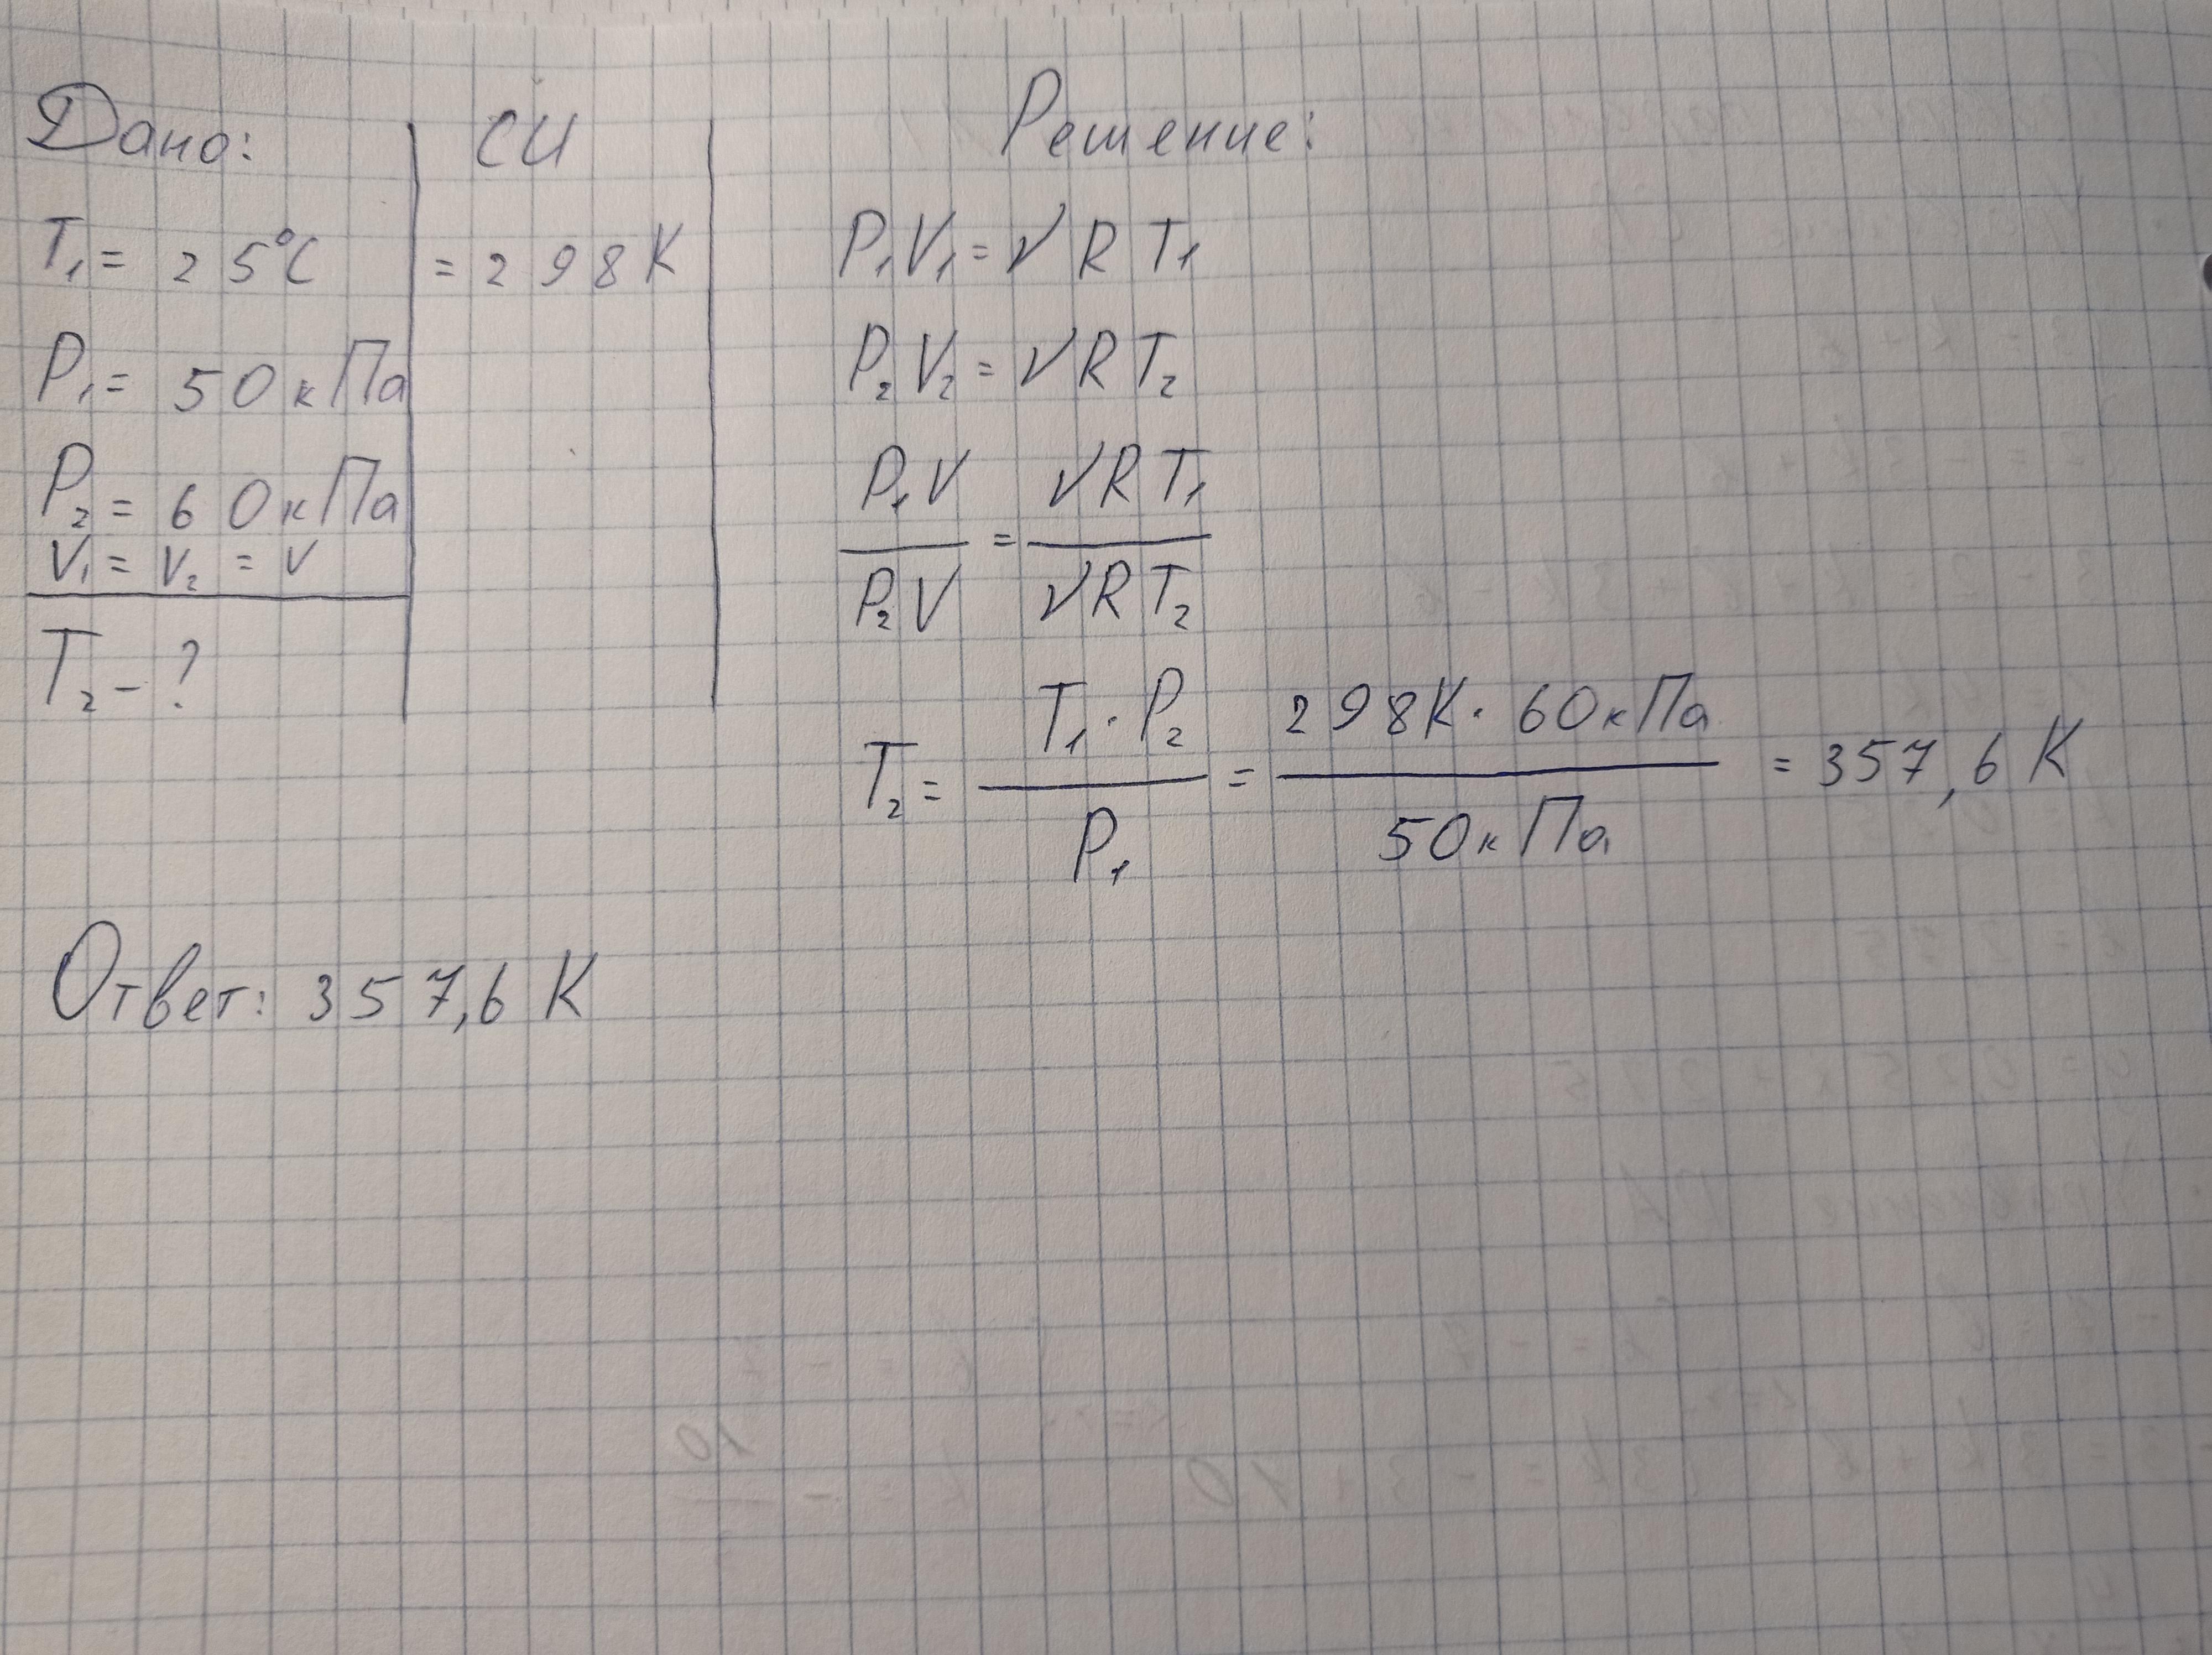 Дано:
СИ
T₁ = 25°C
= 298 К
P₁ = 50 кПа
P₂ = 60 кПа
V₁ = V₂ = V
T₂ - ?
Решение:
P₁V₁ = νRT₁
P₂V₂ = νRT₂
P₁V / P₂V = νRT₁ / νRT₂
T₂ = T₁ · P₂ / P₁ = 298К · 60кПа / 50кПа = 357,6 К
Ответ: 357,6 К